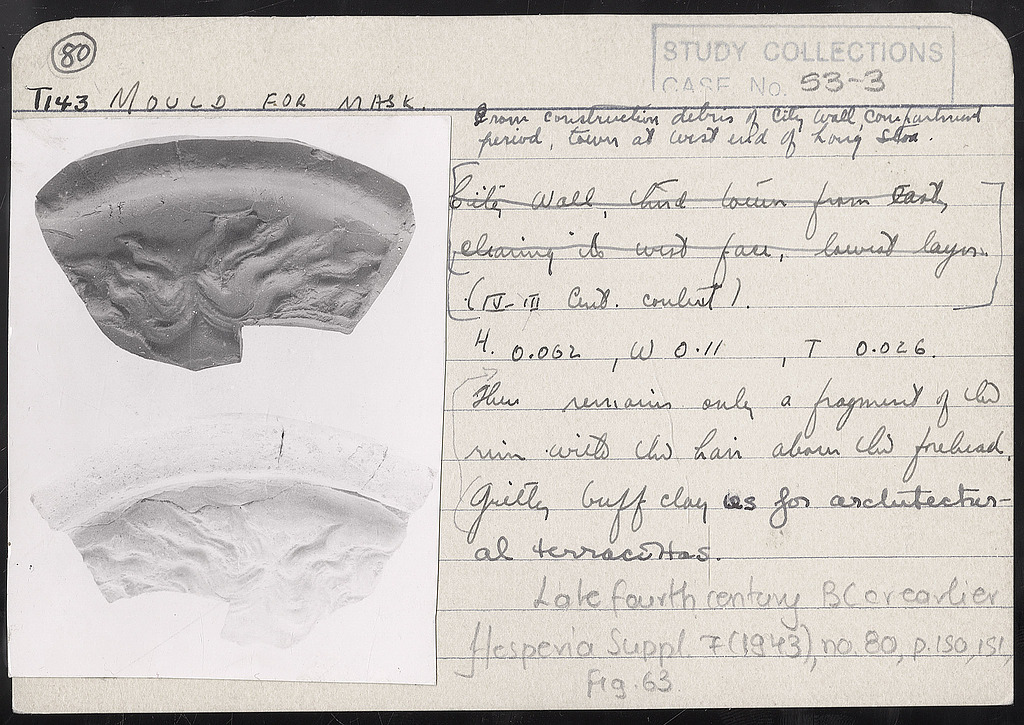 80
STUDY COLLECTIONS
CASE No. S3-3
T143 MOULD FOR MASK.
From construction debris of City Wall, Compartment
period, tower at west end of Long Stoa.
City Wall, third tower from East,
clearing its west face, lowest layer.
(IV-III Cent. context).
H. 0.062, W 0.11, T 0.026.
There remains only a fragment of the
rim with the hair above the forehead.
Gritty buff clay as for architectur-
al terracottas.
Late fourth century BC or earlier
Hesperia Suppl. 7 (1943), no. 80, p. 150, 151,
Fig. 63